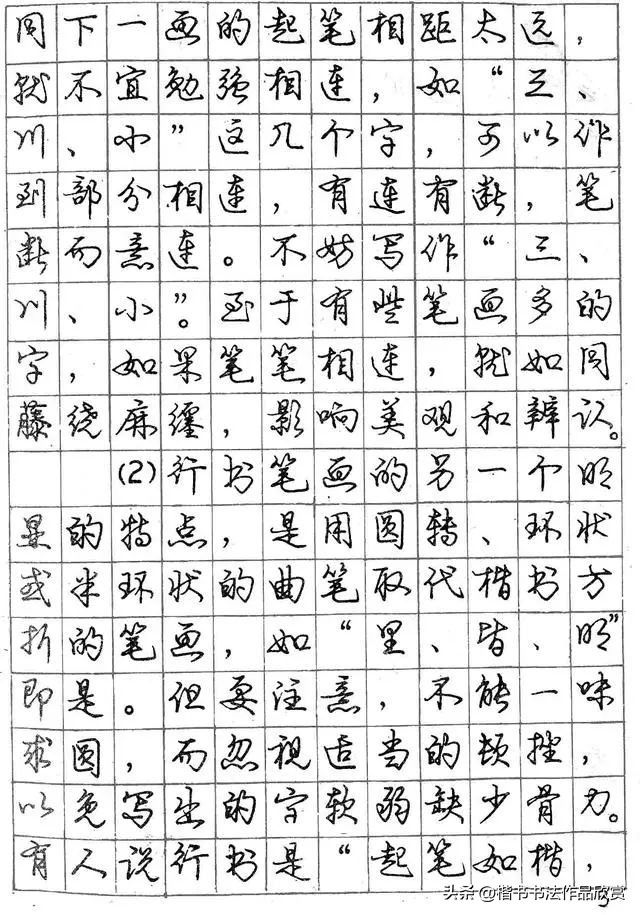 同下一画的起笔相距太远，
就不宜勉强相连，如“三、
川、小”这几个字，可以作
到部分相连，有连有断，笔
断而意连。不妨写作“三、
川、小”。至于有些笔画多的
字，如果笔笔相连，就如同
藤绕麻缠，影响美观和辨认。
(2)行书笔画的另一个明
显的特点，是用圆转、环状
或半环状的曲笔取代楷书方
折的笔画，如“里、皆、明”
即是。但要注意，不能一味
求圆，而忽视适当的顿挫，
以免写出的字软弱缺少骨力。
有人说行书是“起笔如楷，
头条@楷书书法作品欣赏